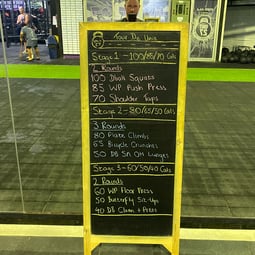 Tour De Unit
Stage 1 - 100/85/70 Cals
2 Rounds
100 Wall Squats
85 WP Push Press
70 Shoulder Taps
Stage 2 - 80/65/50 Cals
3 Rounds
80 Plate Climbs
65 Bicycle Crunches
50 DB SA OH Lunges
Stage 3 - 60/50/40 Cals
2 Rounds
60 WP Floor Press
50 Butterfly Sit-Ups
40 DB Clean + Press